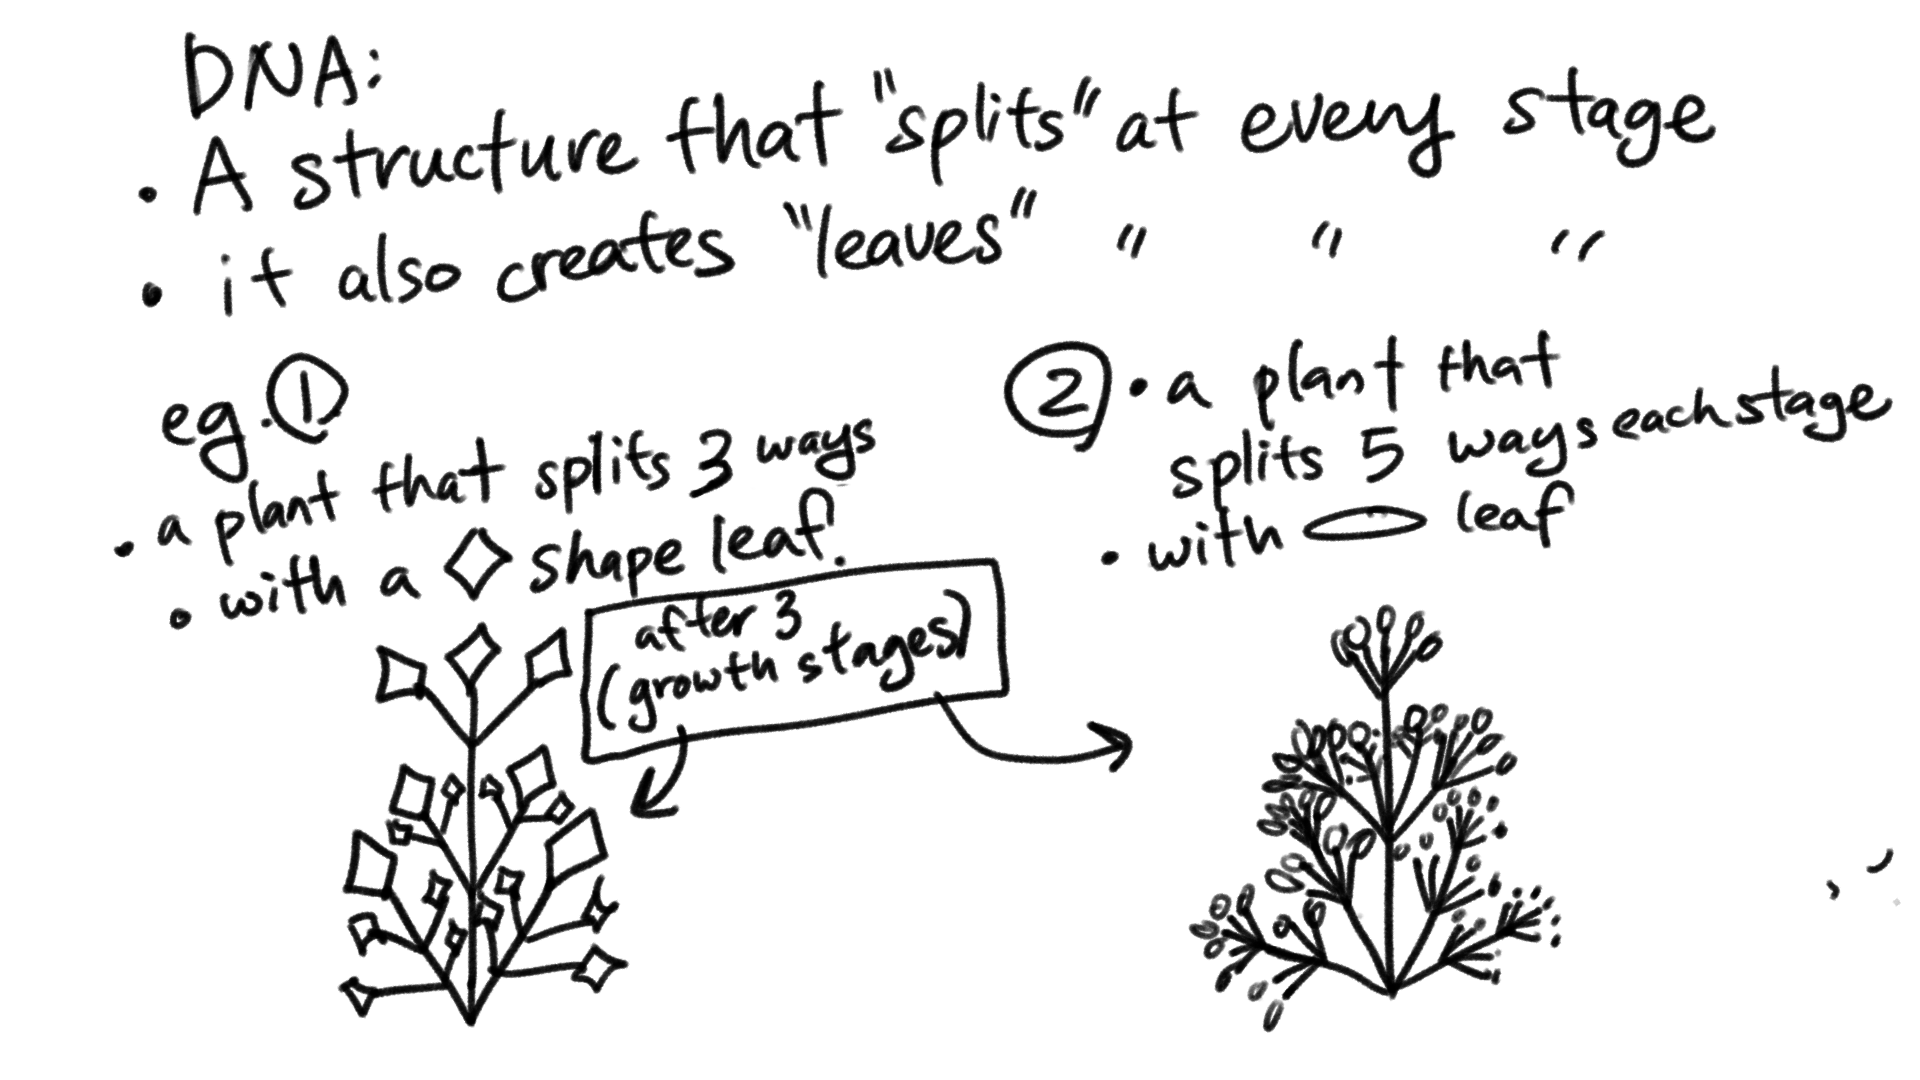 DNA:
• A structure that "splits" at every stage
• it also creates "leaves" " " "
eg. 1
• a plant that splits 3 ways
• with a ◇ shape leaf.
2 • a plant that
splits 5 ways each stage
• with leaf
after 3
(growth stages)